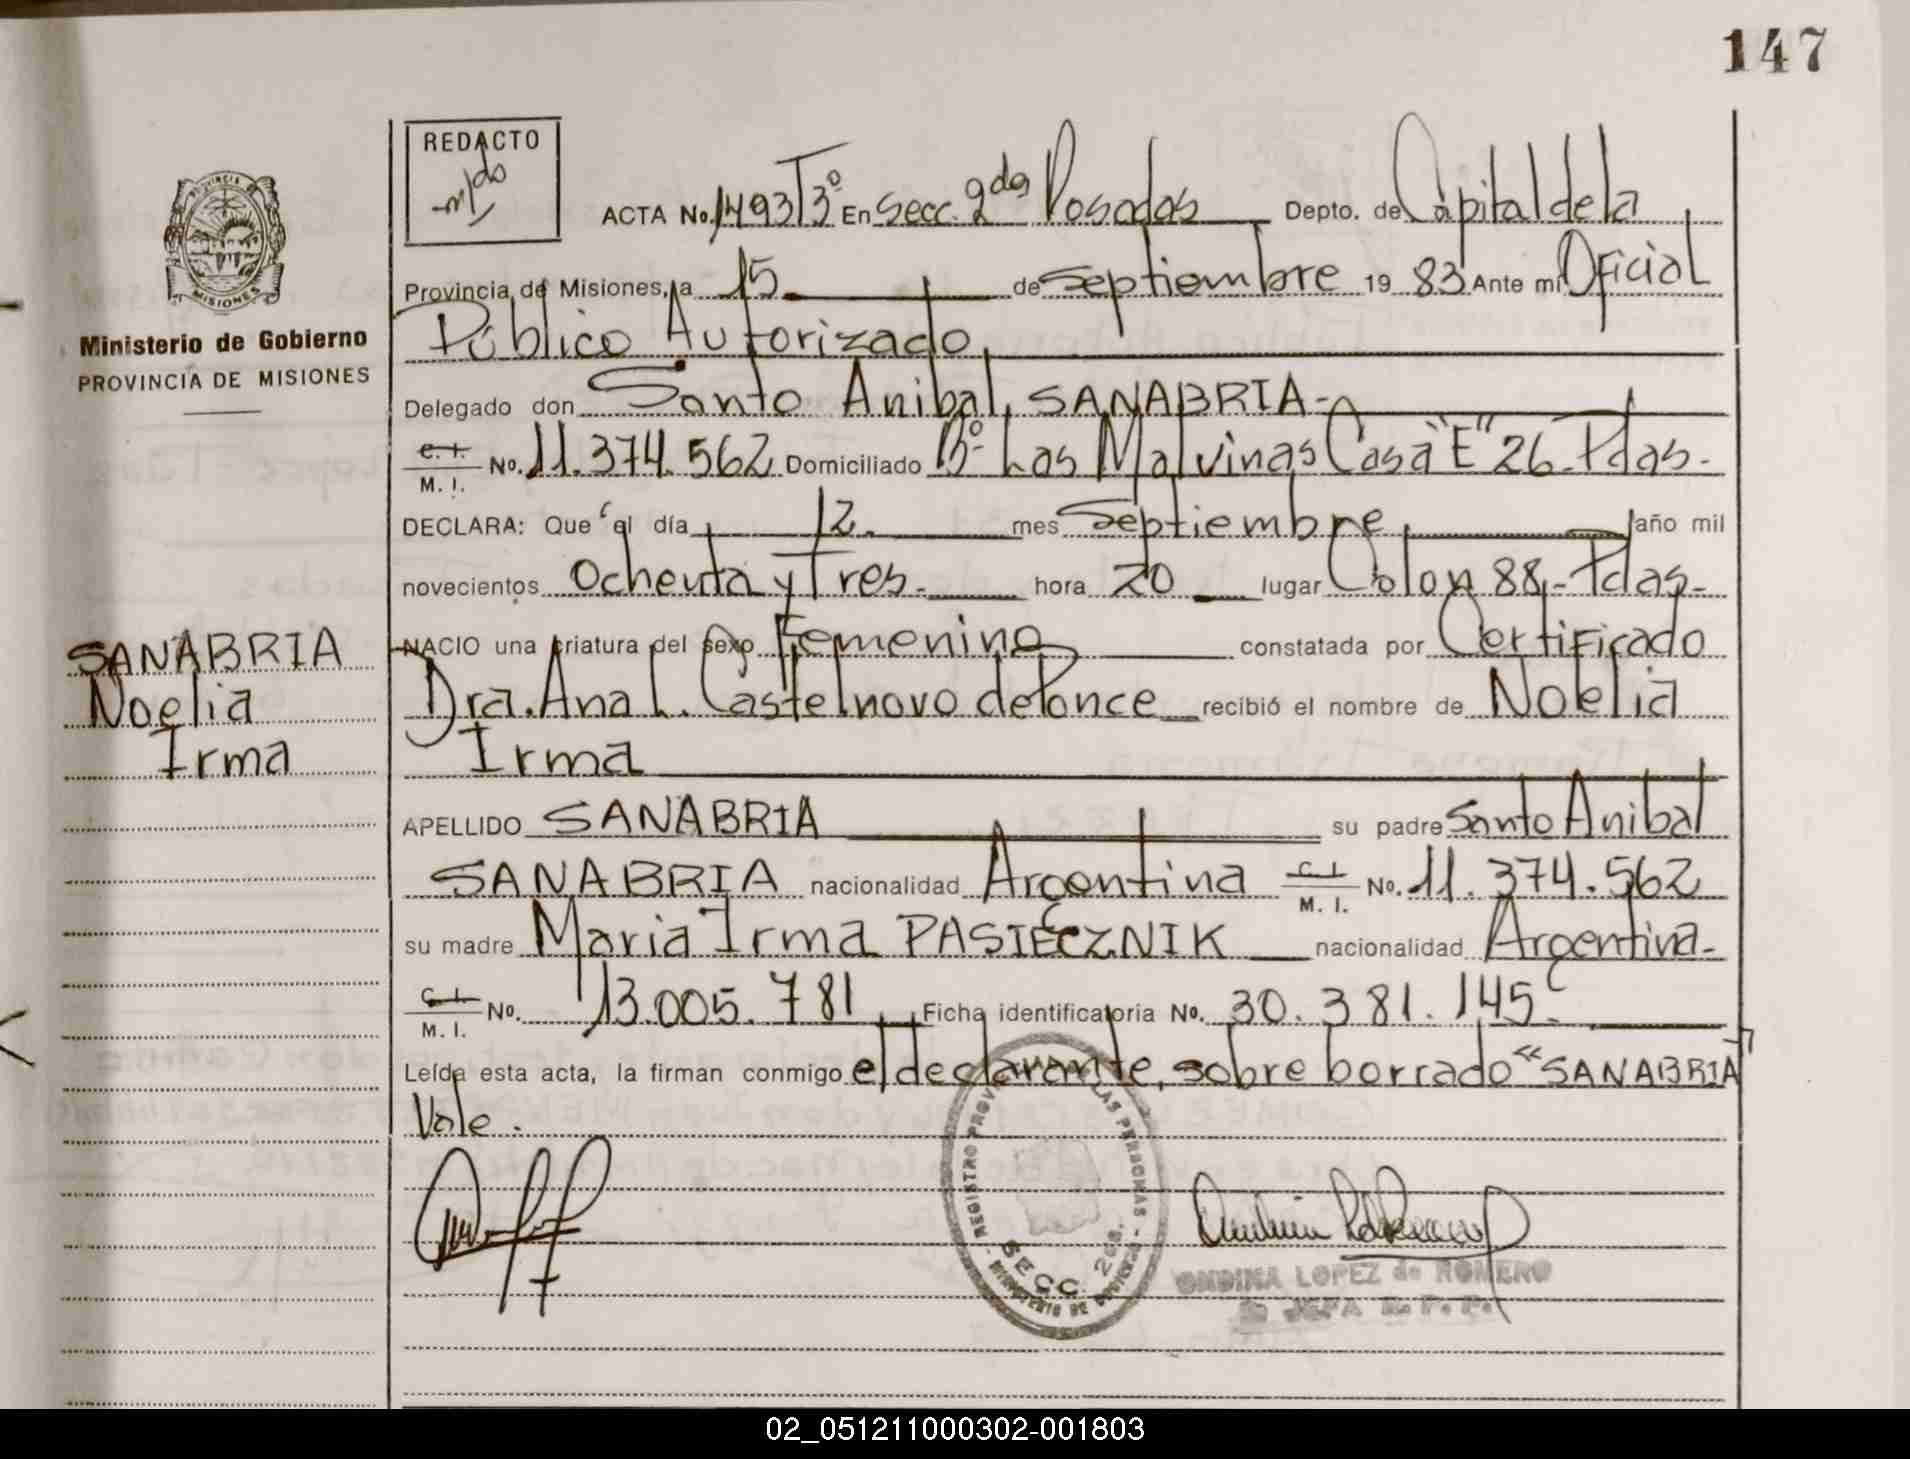 147
REDACTO
ACTA No. 1493 T3º En Secc. 2da Posadas Depto. de Capital de la
Provincia de Misiones, a 15 de Septiembre 19 83 Ante mi Oficial
Público Autorizado
Ministerio de Gobierno
PROVINCIA DE MISIONES
MISIONES
Delegado don Santo Anibal, SANABRIA-
C. I. M. I. No. 11.374.562 Domiciliado Bº Las Malvinas Casa "E" 26 Pdas.
DECLARA: Que el día 12 mes Septiembre año mil
novecientos Ochenta y Tres. hora 20 lugar Colon 88,- Pdas-
SANABRIA
Noelia
Irma
NACIO una criatura del sexo Femenino constatada por Certificado
Dra. Ana L. Castelnovo de Ponce recibió el nombre de Noelia
Irma
APELLIDO SANABRIA su padre Santo Anibal
SANABRIA nacionalidad Argentina C. I. M. I. No. 11.374.562
su madre Maria Irma PASIECZNIK nacionalidad Argentina-
C. I. M. I. No. 13.005.781 Ficha identificatoria No. 30.381.145
Leída esta acta, la firman conmigo el declarante, sobre borrado "SANABRIA"
Vale.
REGISTRO PROV. LAS PERSONAS
SECC. 2da.
ONDINA LOPEZ de ROMERO
JEFA R. P. P.
02_051211000302-001803